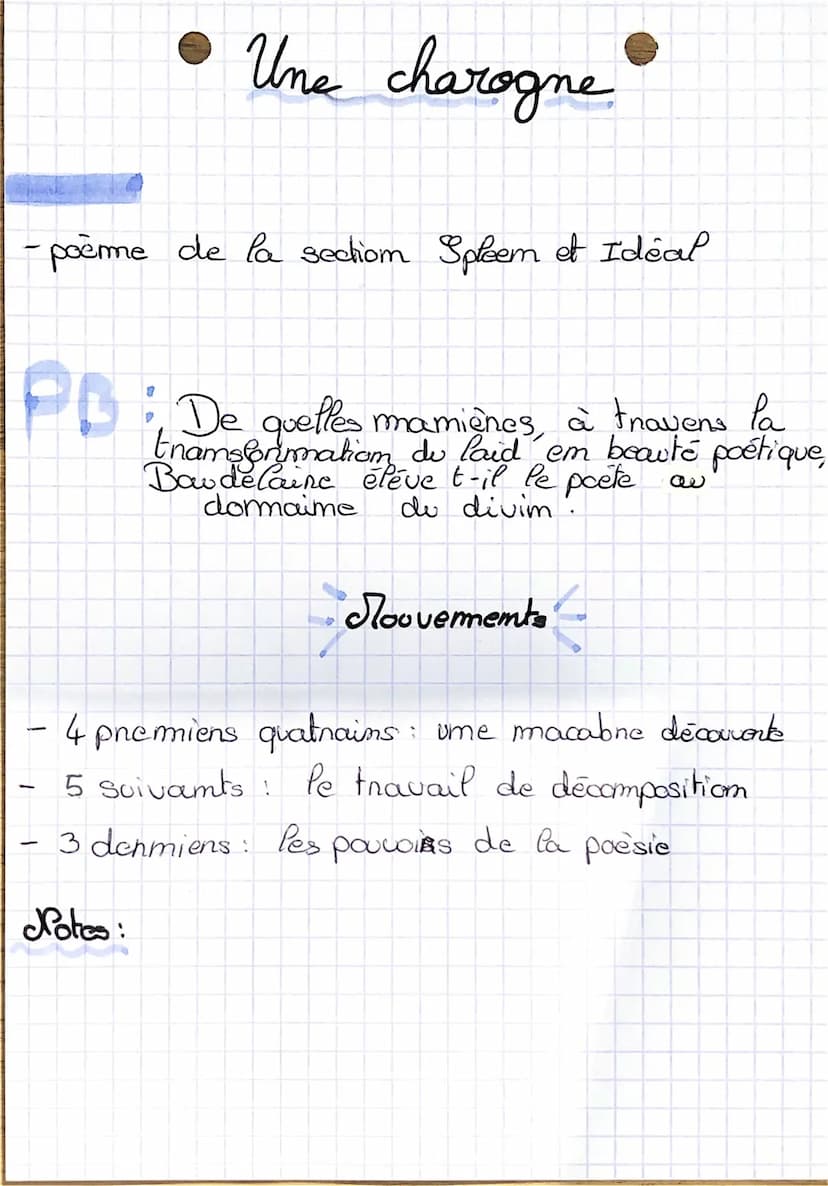 Une charogne
- poème de la section Spleen et Idéal
PB : De quelles manières, à travers la
transformation du laid en beauté poétique,
Baudelaire élève t-il le poète au
domaine du divin.
Mouvements
- 4 premiers quatrains : une macabre découverte
- 5 suivants : le travail de décomposition
- 3 derniers : les pouvoirs de la poèsie
Notes :